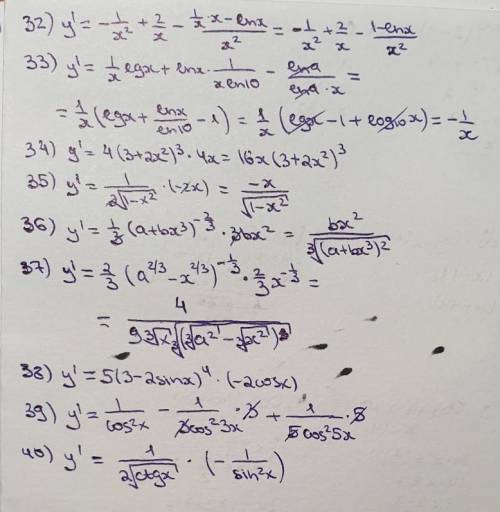 32) y' = -1/x² + 2/x - (1/x · x - lnx)/x² = -1/x² + 2/x - (1-lnx)/x²
33) y' = 1/x lgx + lnx · 1/(xln10) - lna/(lna · x) =
= 1/x (lgx + lnx/ln10 - 1) = 1/x (lgx - 1 + log₁₀x) = -1/x
34) y' = 4(3+2x²)³ · 4x = 16x(3+2x²)³
35) y' = 1/(2√(1-x²)) · (-2x) = -x/√(1-x²)
36) y' = 1/3 (a+bx³)^(-2/3) · 3bx² = bx²/∛((a+bx³)²)
37) y' = 2/3 (a^(2/3) - x^(2/3))^(-1/3) · 2/3 x^(-1/3) =
= 4/(9∛x ∛(∛a² - ∛x²))
38) y' = 5(3-2sinx)⁴ · (-2cosx)
39) y' = 1/cos²x - 1/(3cos²3x) · 3 + 1/(5cos²5x) · 5
40) y' = 1/(2√ctgx) · (-1/sin²x)